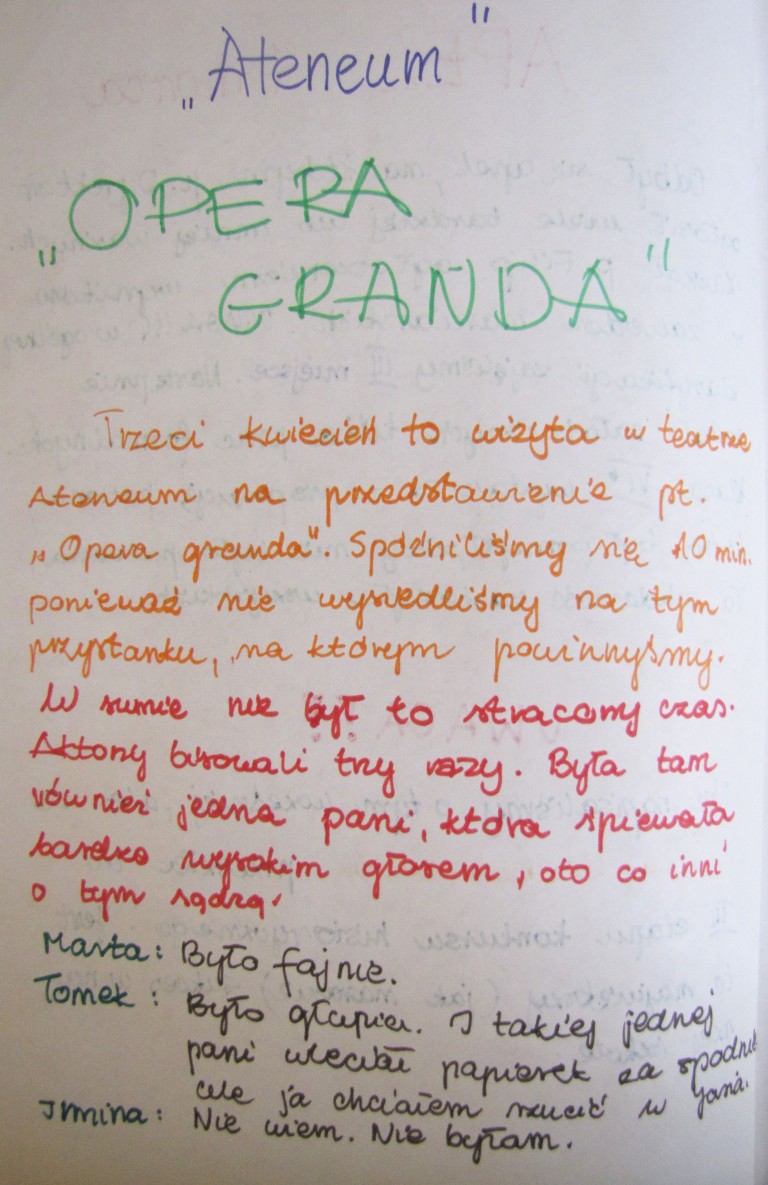 „Ateneum"
„OPERA
GRANDA"
Trzeci kwiecień to wizyta w teatrze
Ateneum na przedstawienie pt.
„Opera granda". Spóźniliśmy się 10 min.
ponieważ nie wysiedliśmy na tym
przystanku, na którym powinnyśmy.
W sumie nie był to stracony czas.
Aktorzy bisowali trzy razy. Była tam
również jedna pani, która śpiewała
bardzo wysokim głosem, oto co inni
o tym sądzą.
Marta: Było fajnie.
Tomek: Było głupie. I takiej jednej
pani wleciał papierek za spodnie
ale ja chciałem rzucić w Janá.
Irmina: Nie wiem. Nie byłam.